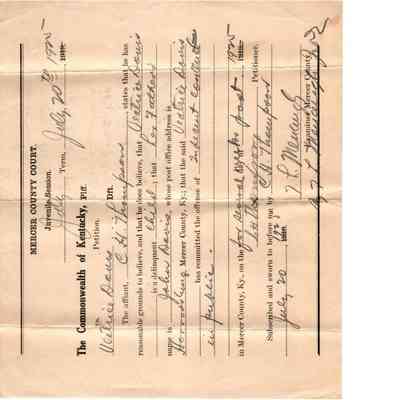 MERCER COUNTY COURT.
Juvenile Session.
July Term, July 20th 1925
The Commonwealth of Kentucky, Plff.
vs. Petition.
Davis Dft.
The affiant, C. H. Thompson, states that he has
reasonable grounds to believe, and that he does believe, that Davis
is a delinquent child, that her Father's
name is John Davis, whose post office address is
Harrodsburg Mercer County, Ky.; that the said Davis
has committed the offense of Indecent conduct
in public.
in Mercer County, Ky., on the for several weeks past 1925
C. H. Thompson Petitioner.
Subscribed and sworn to before me by
July 20
Examiner Mercer County